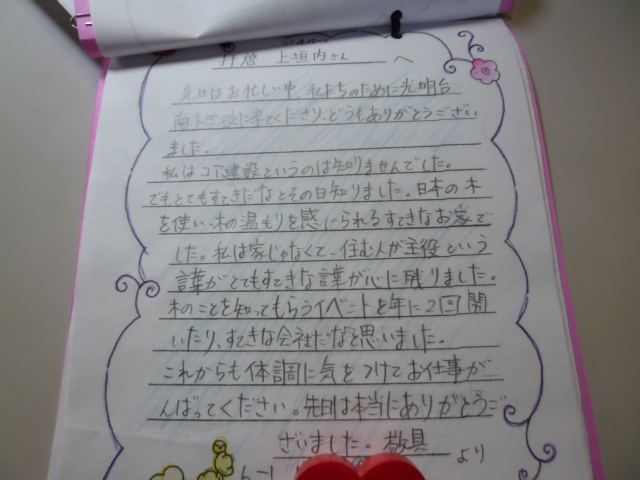 拝啓 上垣内さん へ
先日はお忙しい中、私たちのために光明台
南小学校に来てくださり、どうもありがとうござい
ました。
私はコアー建設というのは知りませんでした。
でもとてもすてきだなとその日知りました。日本の木
を使い、木の温もりを感じられるすてきなお家で
した。私は家じゃなくて、住む人が主役という
言葉がとてもすてきな言葉が心に残りました。
木のことを知ってもらうイベントを年に2回開
いたり、すてきな会社だなと思いました。
これからも体調に気をつけてお仕事が
んばってください。先日は本当にありがとうご
ざいました。敬具
より